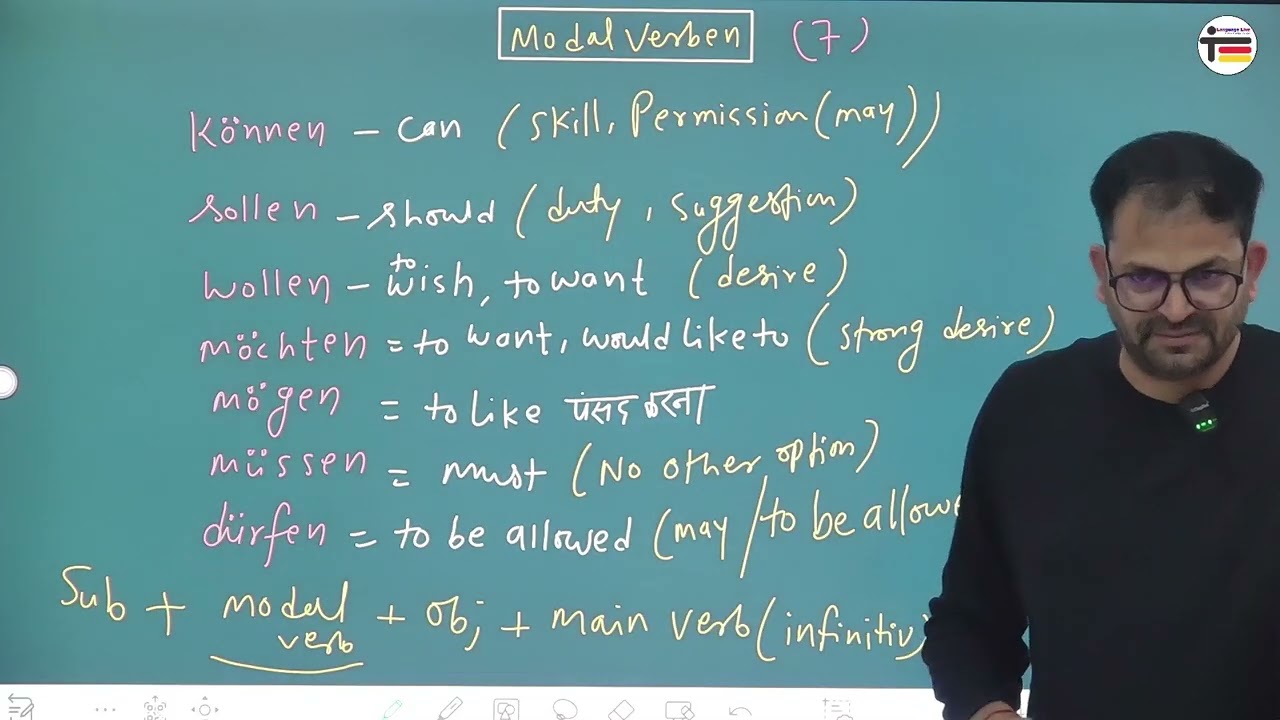 Modal Verben (7)
Language Live
können - can (skill, Permission (may))
sollen - should (duty, suggestion)
wollen - to wish, to want (desire)
möchten = to want, would like to (strong desire)
mögen = to like पसंद करना
müssen = must (No other option)
dürfen = to be allowed (may / to be allowe
Sub + modal verb + obj + main verb (infinitiv)